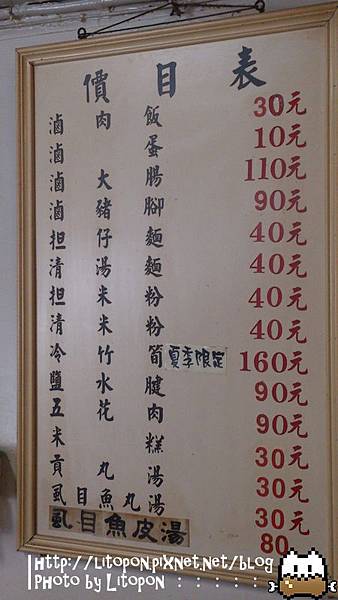 價目表
滷肉飯 30元
滷蛋 10元
滷大腸 110元
滷豬腳 90元
担仔麵 40元
清湯麵 40元
担米粉 40元
清米粉 40元
冷竹筍 夏季限定 160元
鹽水腱 90元
五花肉 90元
米糕 30元
貢丸湯 30元
虱目魚丸湯 30元
虱目魚皮湯 80
Http://litopon.pixnet.net/blog
Photo by Litopon : : : : : :